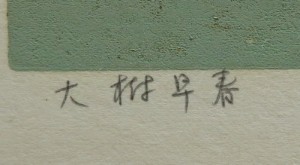 大樹早春